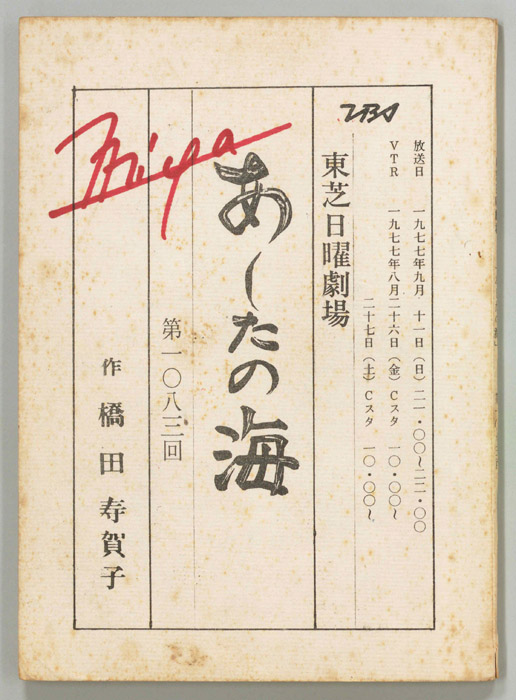 TBS
放送日 一九七七年九月 十一日(日)二一・〇〇〜二二・〇〇
VTR 一九七七年八月二十六日(金)Cスタ 一〇・〇〇〜
二十七日(土)Cスタ 一〇・〇〇〜
東芝日曜劇場
あしたの海
第一〇八三回
作 橋田寿賀子